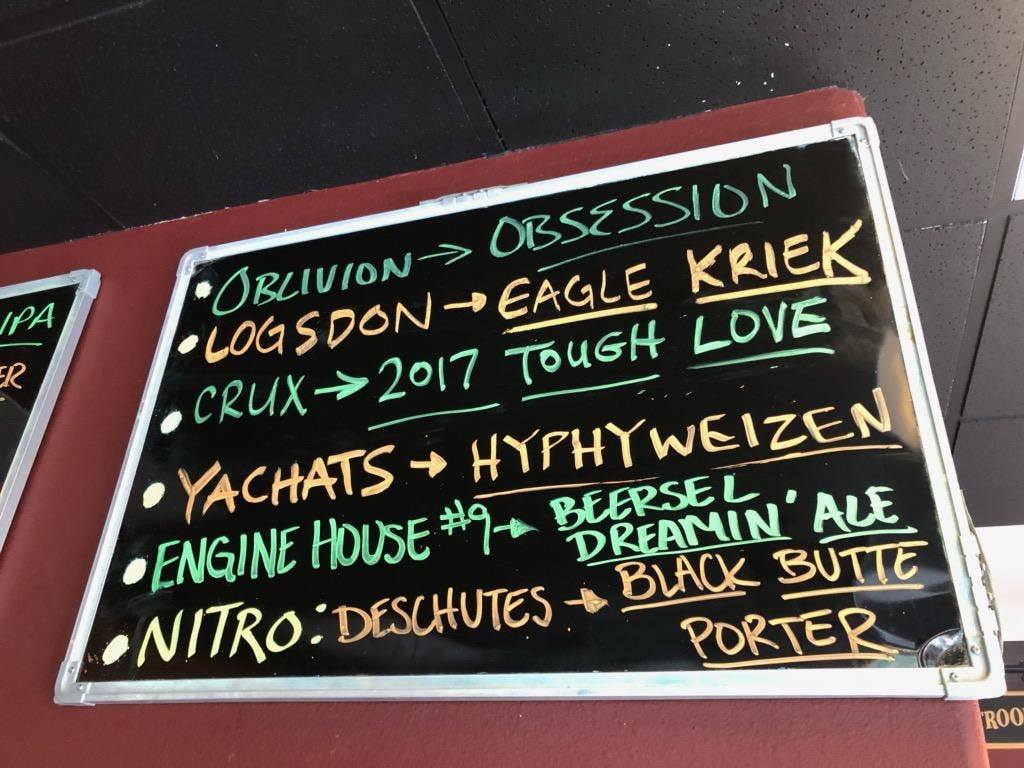 OBLIVION → OBSESSION
LOGSDON → EAGLE KRIEK
CRUX → 2017 TOUGH LOVE
YACHATS → HYPHYWEIZEN
ENGINE HOUSE #9 → BEERSEL
DREAMIN' ALE
NITRO: DESCHUTES → BLACK BUTTE
PORTER
IPA
ER
ROO